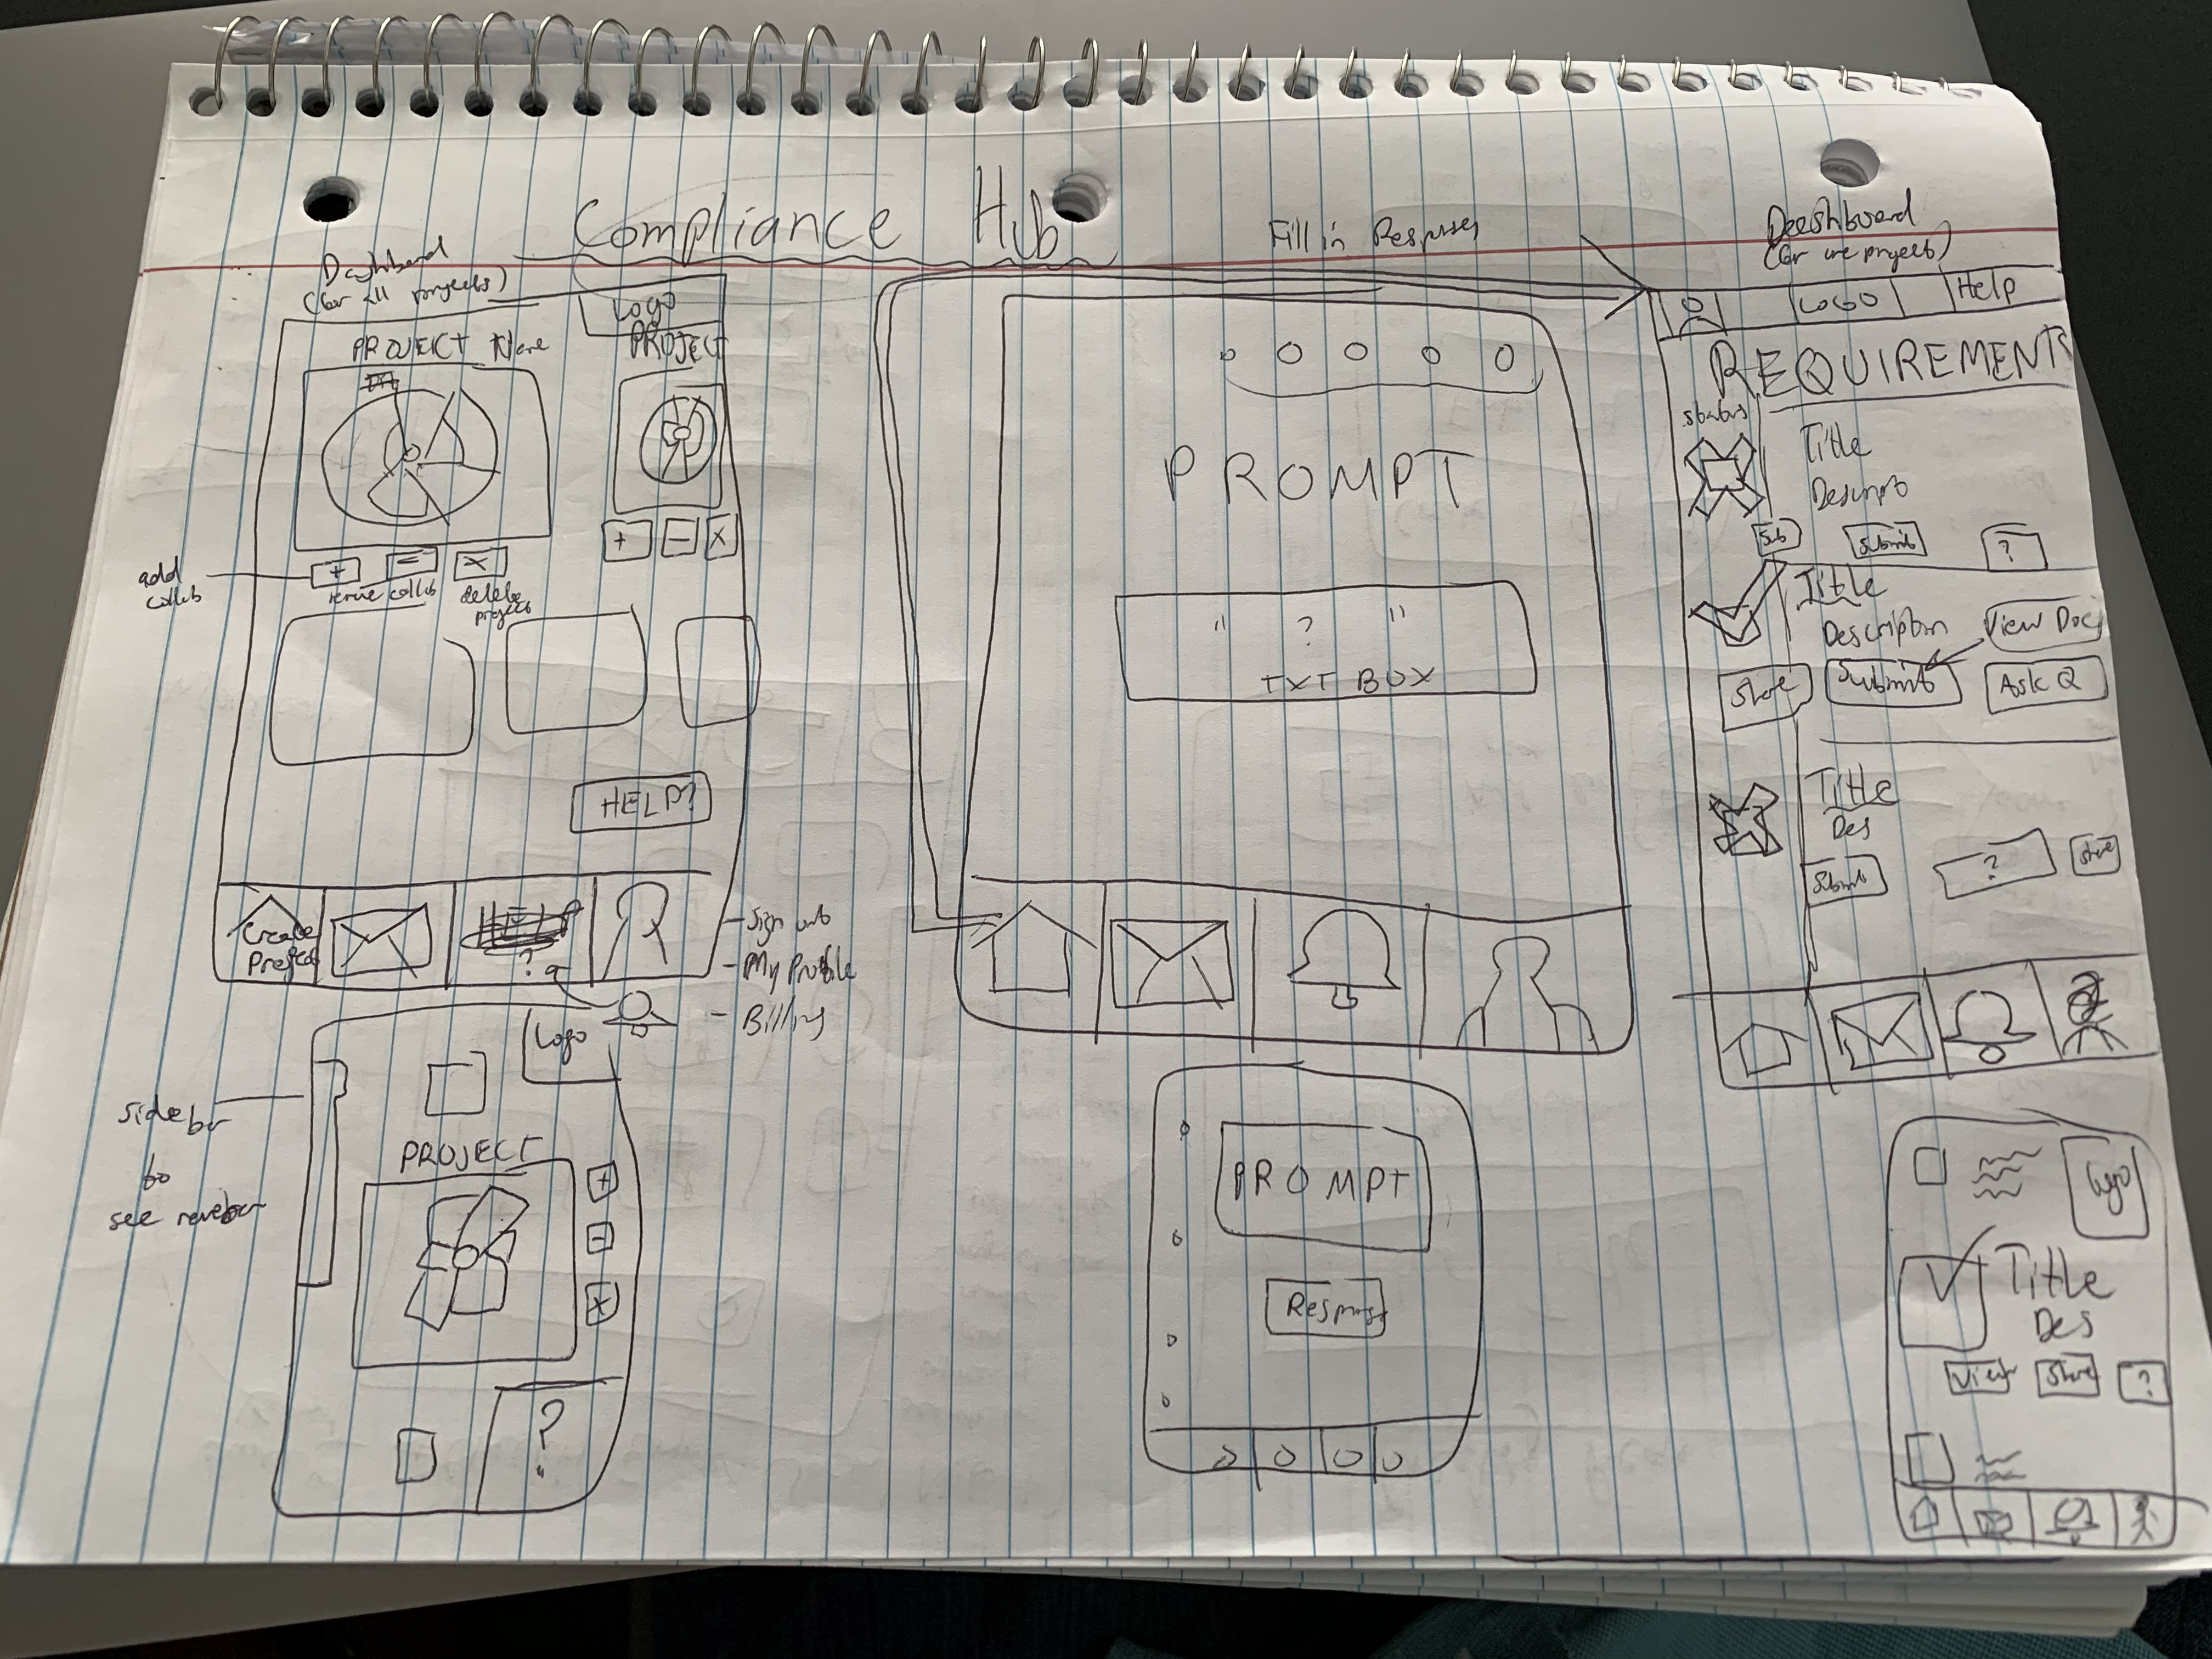 Compliance Hub
Dashboard
(for all projects)
Logo
PROJECT Name
PROJECT
+
-
X
+
X
add
collab
collab
delete
project
HELP?
Create
Project
?
- Sign out
- My Profile
- Billing
Logo
sidebar
to
see
PROJECT
+
-
X
?
Fill in Responses
PROMPT
" ? "
TXT BOX
PROMPT
Response
Dashboard
(for one project)
LOGO
Help
REQUIREMENTS
status
Title
Descript
Sub
Submit
?
Title
Description
View Doc
Share
Submit
Ask Q
Title
Des
Submit
?
Share
Logo
Title
Des
View
Share
?